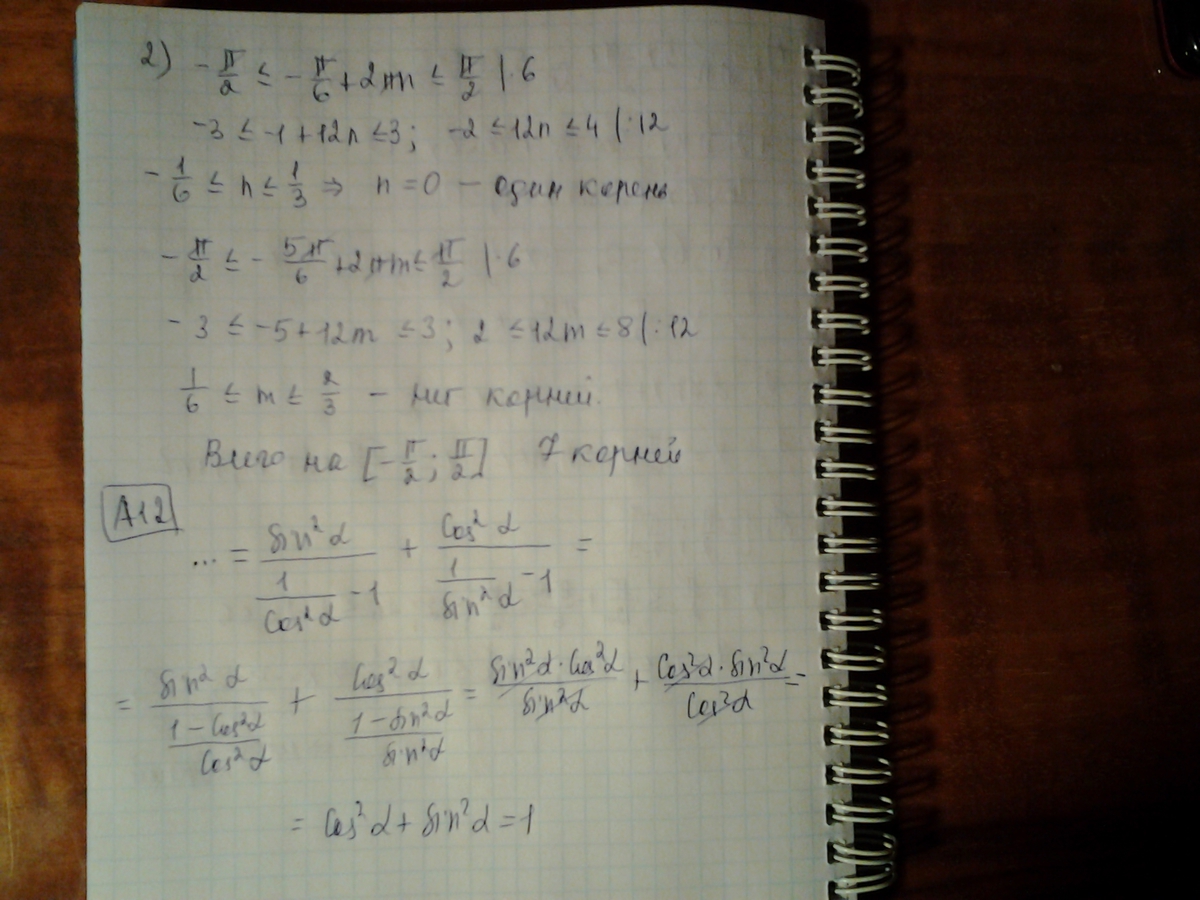 2) -π/2 ≤ -π/6 + 2πn ≤ π/2 |·6
-3 ≤ -1 + 12n ≤ 3; -2 ≤ 12n ≤ 4 |:12
-1/6 ≤ n ≤ 1/3 ⇒ n = 0 – один корень
-π/2 ≤ -5π/6 + 2πm ≤ π/2 |·6
-3 ≤ -5 + 12m ≤ 3; 2 ≤ 12m ≤ 8 |:12
1/6 ≤ m ≤ 2/3 – нет корней.
Всего на [-π/2; π/2] 7 корней
A12
... = sin²α/(1/cos²α - 1) + cos²α/(1/sin²α - 1) =
= sin²α/((1 - cos²α)/cos²α) + cos²α/((1 - sin²α)/sin²α) = sin²α·cos²α/sin²α + cos²α·sin²α/cos²α =
= cos²α + sin²α = 1